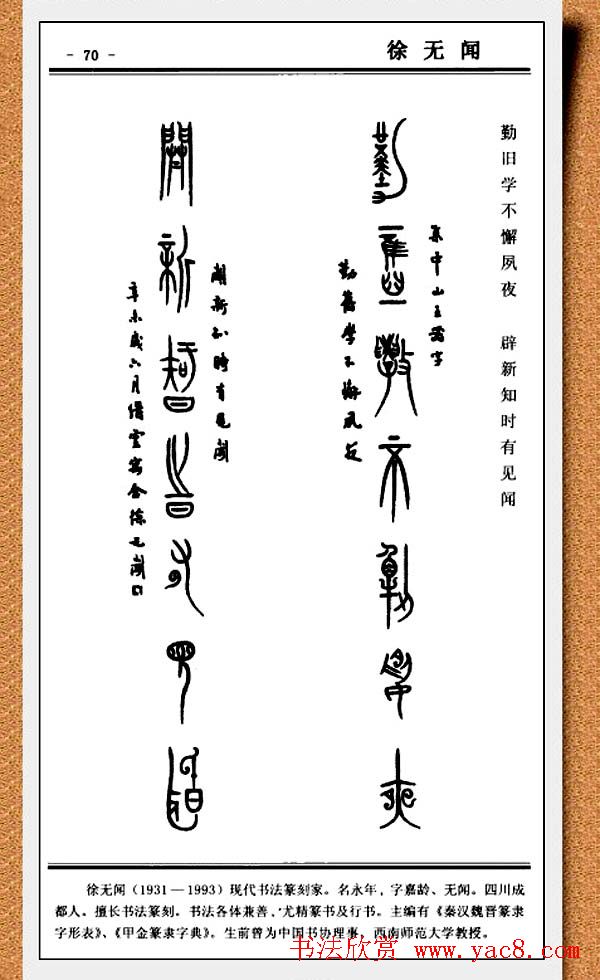 - 70 -
徐无闻
勤旧学不懈夙夜 辟新知时有见闻
集中山王器字
勤舊學不懈夙夜
勤舊學不懈夙夜
闢新知時有見聞
闢新知時有見聞
辛未歲六月縉雲寓舍徐无聞
徐无闻（1931—1993）现代书法篆刻家。名永年，字嘉龄、无闻。四川成
都人。擅长书法篆刻。书法各体兼善，尤精篆书及行书。主编有《秦汉魏晋篆隶
字形表》、《甲金篆隶字典》。生前曾为中国书协理事，西南师范大学教授。
书法欣赏 www.yac8.com